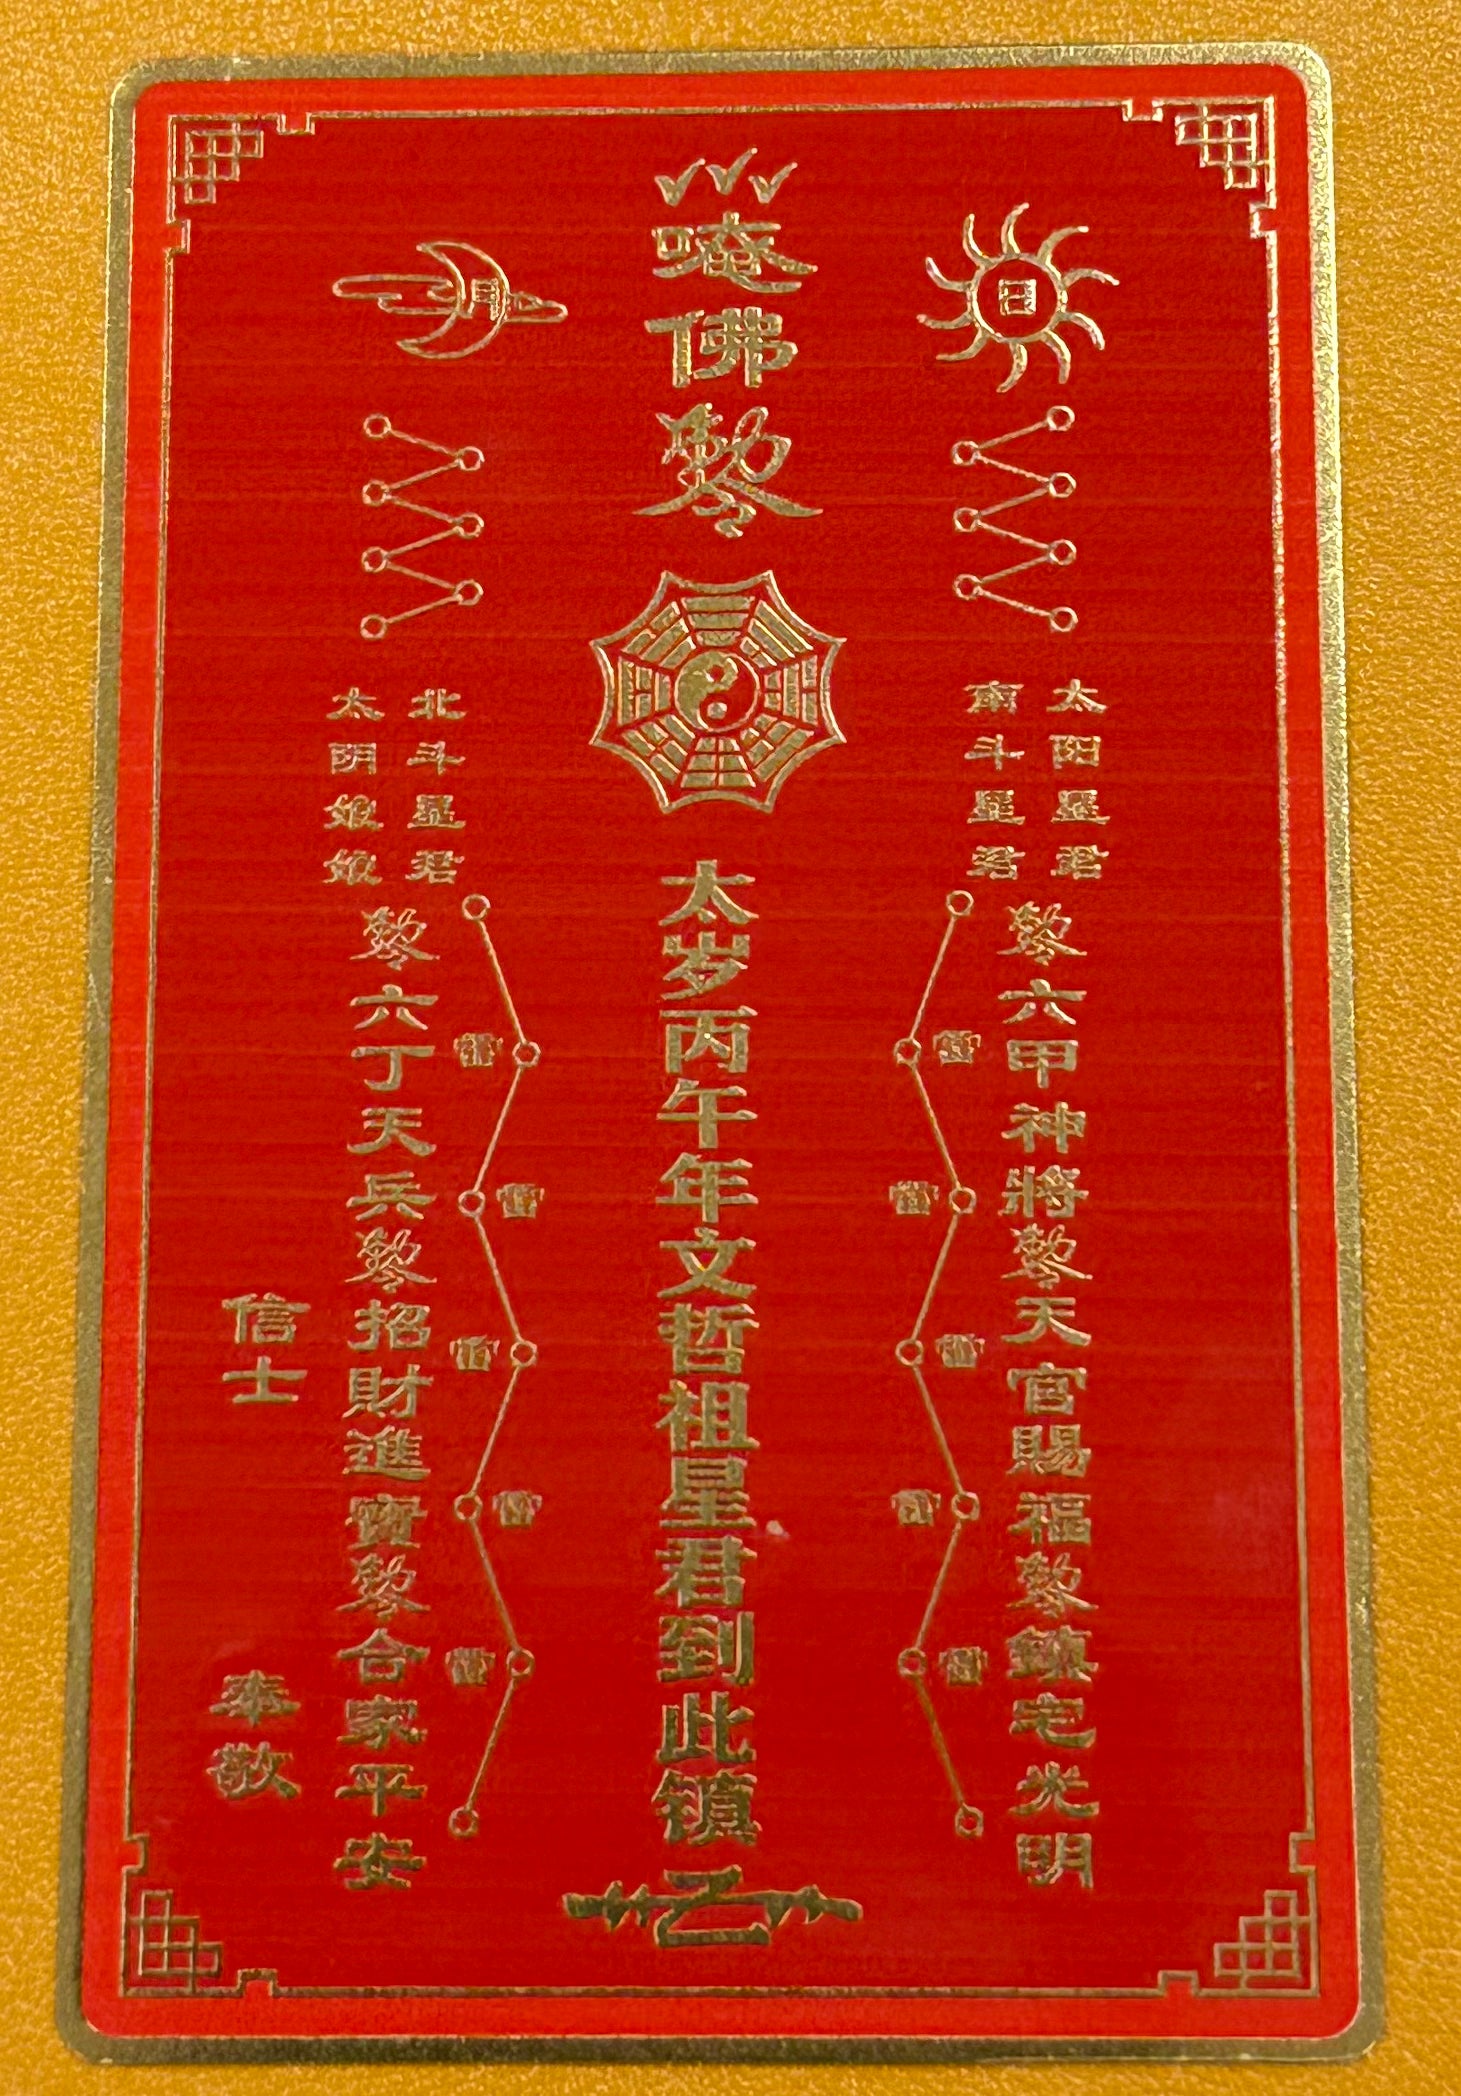 日
月
唵佛勅令
太阳星君
南斗星君
北斗星君
太阴娘娘
勅令六甲神將勅令天官賜福勅令鎮宅光明
太岁丙午年文哲祖星君到此镇
勅令六丁天兵勅令招財進寶勅令合家平安
信士
奉敬